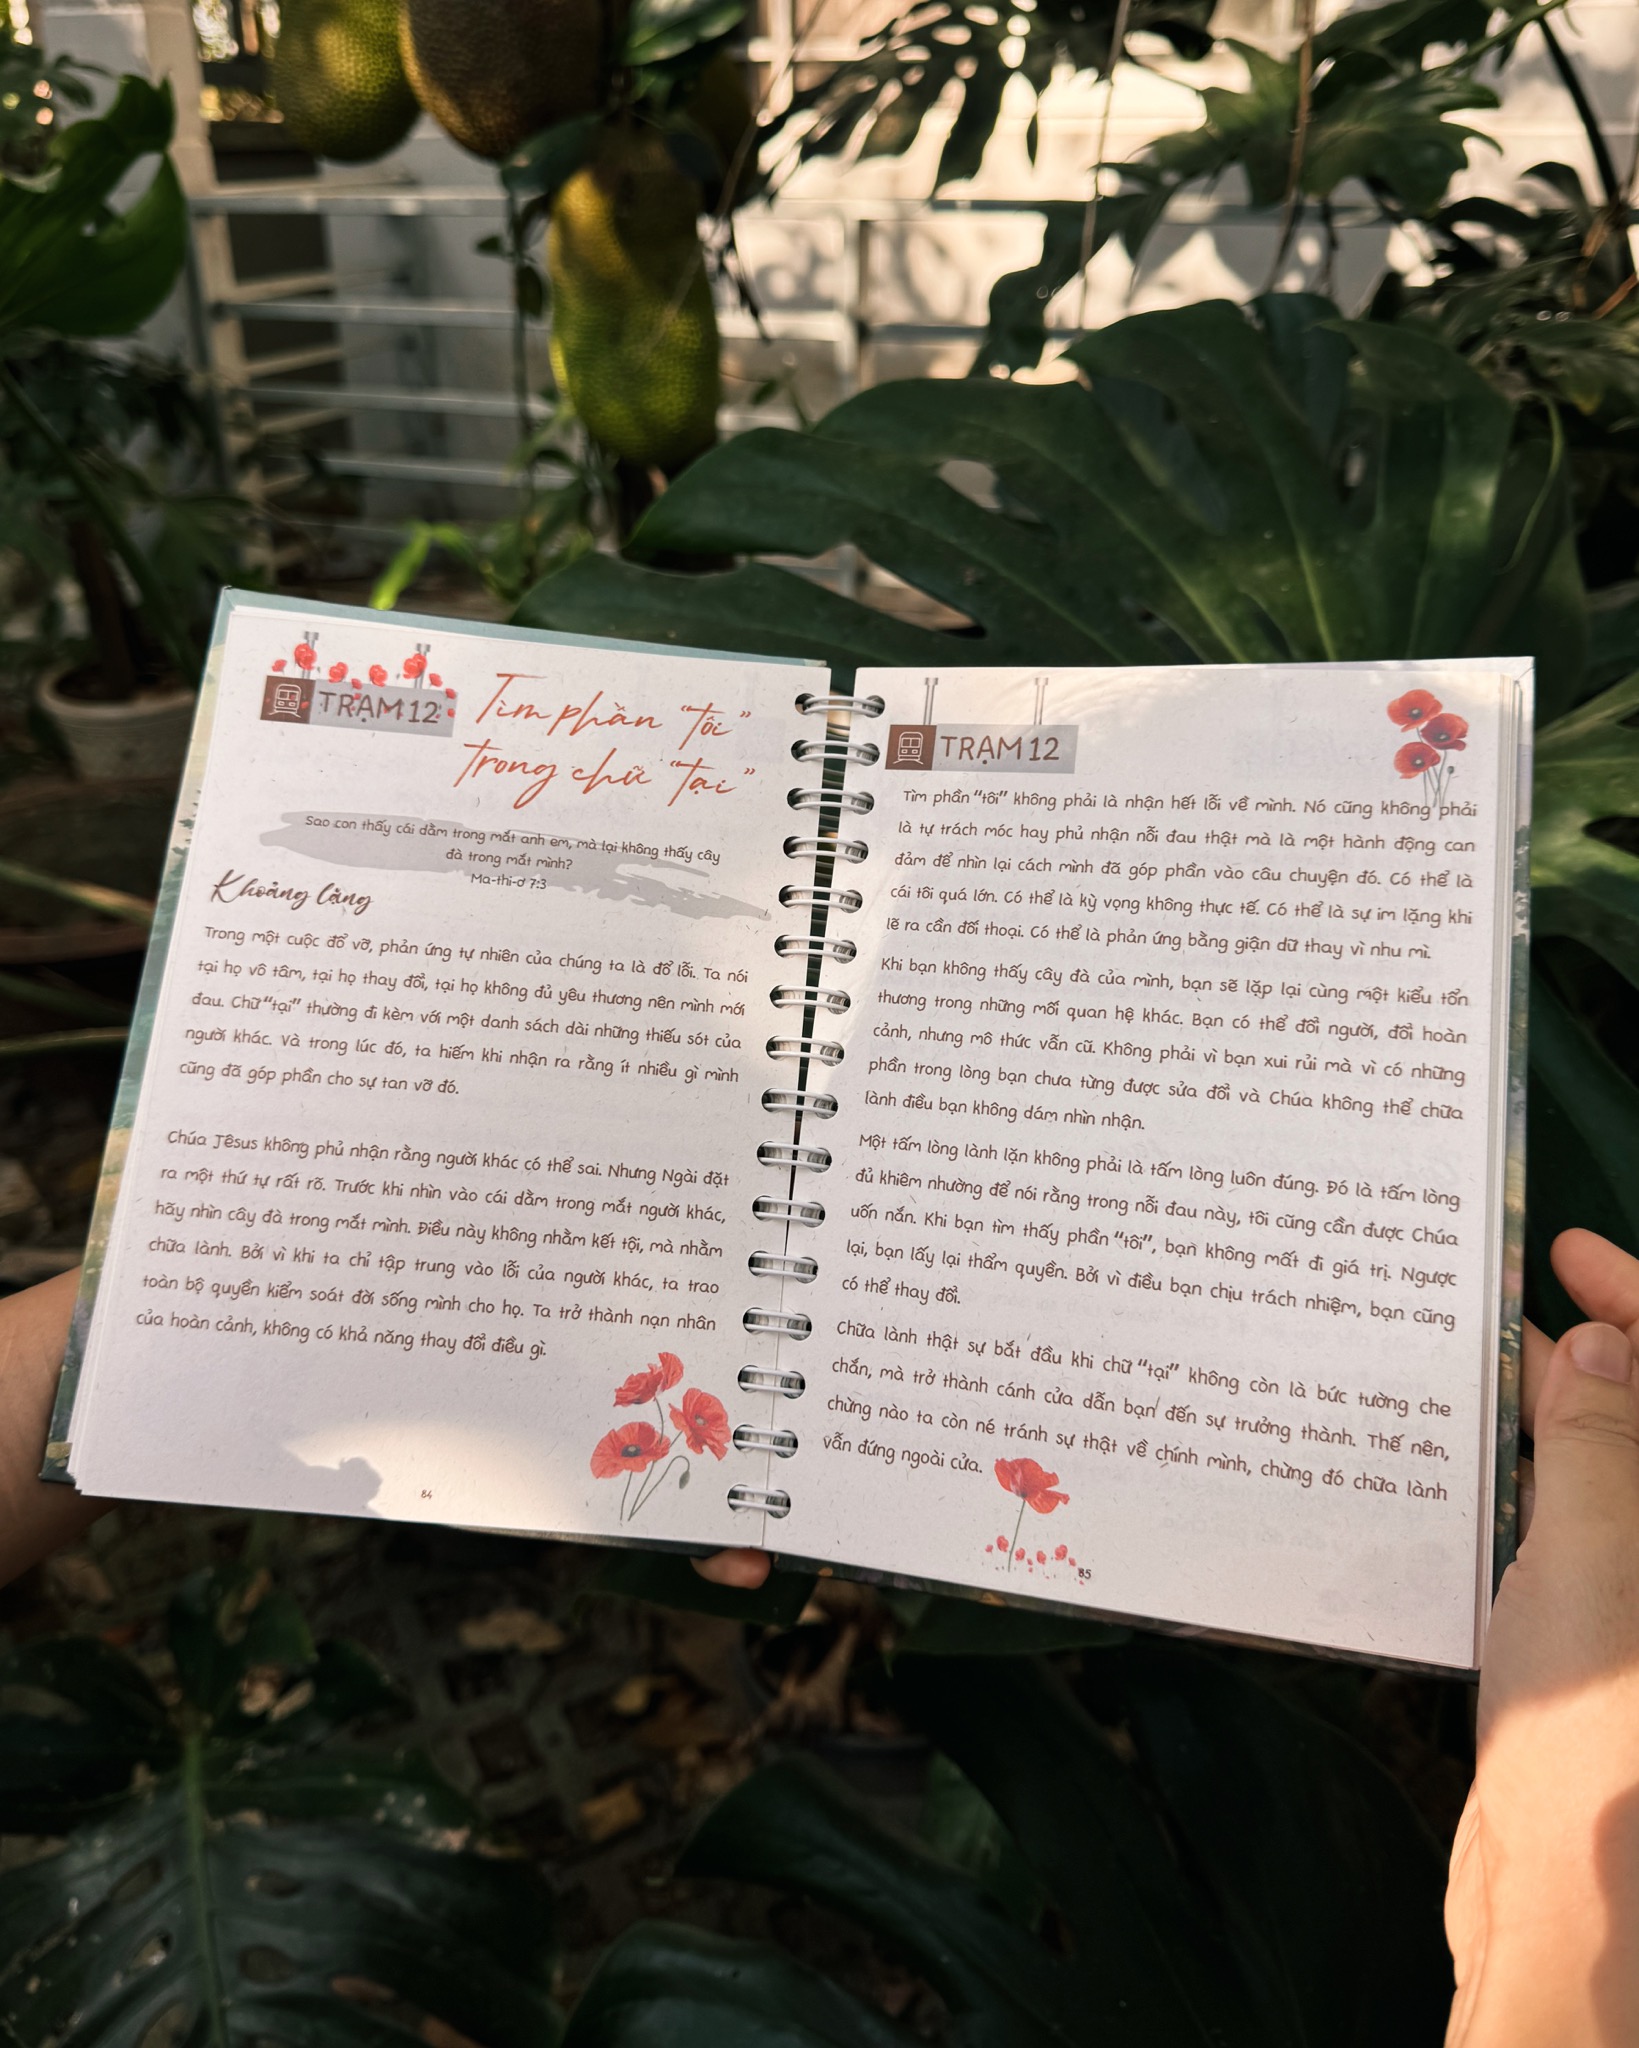 TRẠM 12
Tìm phần “tôi”
trong chữ “tại”
Sao con thấy cái dằm trong mắt anh em, mà lại không thấy cây
đà trong mắt mình?
Ma-thi-ơ 7:3
Khoảng lặng
Trong một cuộc đổ vỡ, phản ứng tự nhiên của chúng ta là đổ lỗi. Ta nói
tại họ vô tâm, tại họ thay đổi, tại họ không đủ yêu thương nên mình mới
đau. Chữ “tại” thường đi kèm với một danh sách dài những thiếu sót của
người khác. Và trong lúc đó, ta hiếm khi nhận ra rằng ít nhiều gì mình
cũng đã góp phần cho sự tan vỡ đó.
Chúa Jêsus không phủ nhận rằng người khác có thể sai. Nhưng Ngài đặt
ra một thứ tự rất rõ. Trước khi nhìn vào cái dằm trong mắt người khác,
hãy nhìn cây đà trong mắt mình. Điều này không nhằm kết tội, mà nhằm
chữa lành. Bởi vì khi ta chỉ tập trung vào lỗi của người khác, ta trao
toàn bộ quyền kiểm soát đời sống mình cho họ. Ta trở thành nạn nhân
của hoàn cảnh, không có khả năng thay đổi điều gì.
84
TRẠM 12
Tìm phần “tôi” không phải là nhận hết lỗi về mình. Nó cũng không phải
là tự trách móc hay phủ nhận nỗi đau thật mà là một hành động can
đảm để nhìn lại cách mình đã góp phần vào câu chuyện đó. Có thể là
cái tôi quá lớn. Có thể là kỳ vọng không thực tế. Có thể là sự im lặng khi
lẽ ra cần đối thoại. Có thể là phản ứng bằng giận dữ thay vì nhu mì.
Khi bạn không thấy cây đà của mình, bạn sẽ lặp lại cùng một kiểu tổn
thương trong những mối quan hệ khác. Bạn có thể đổi người, đổi hoàn
cảnh, nhưng mô thức vẫn cũ. Không phải vì bạn xui rủi mà vì có những
phần trong lòng bạn chưa từng được sửa đổi và Chúa không thể chữa
lành điều bạn không dám nhìn nhận.
Một tấm lòng lành lặn không phải là tấm lòng luôn đúng. Đó là tấm lòng
đủ khiêm nhường để nói rằng trong nỗi đau này, tôi cũng cần được Chúa
uốn nắn. Khi bạn tìm thấy phần “tôi”, bạn không mất đi giá trị. Ngược
lại, bạn lấy lại thẩm quyền. Bởi vì điều bạn chịu trách nhiệm, bạn cũng
có thể thay đổi.
Chữa lành thật sự bắt đầu khi chữ “tại” không còn là bức tường che
chắn, mà trở thành cánh cửa dẫn bạn đến sự trưởng thành. Thế nên,
chừng nào ta còn né tránh sự thật về chính mình, chừng đó chữa lành
vẫn đứng ngoài cửa.
85